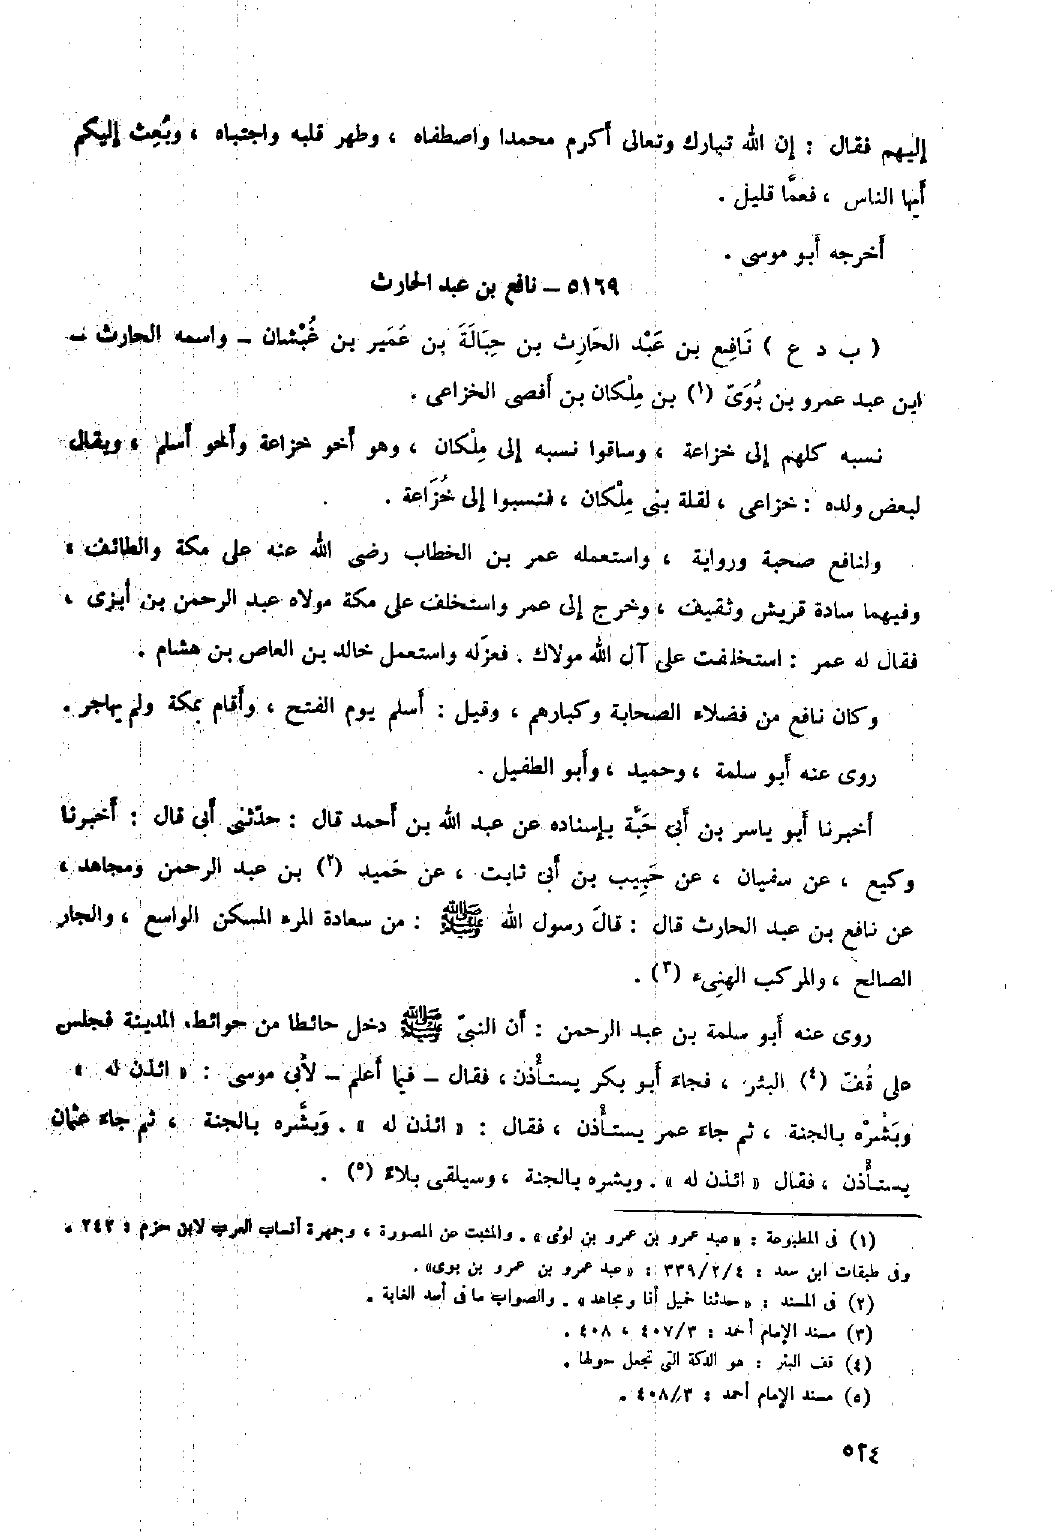 إليهم فقال : إن الله تبارك وتعالى أكرم محمدا واصطفاه ، وطهر قلبه واجتباه ، وبُعِث إليكم
أيها الناس ، فعمَّا قليل .
أخرجه أبو موسى .
٥١٦٩ – نافع بن عبد الحارث
( ب د ع ) نَافِع بن عَبْد الحَارِث بن حِبَالَةَ بن عُمَير بن غُبْشان – واسمه الحارث –
ابن عبد عمرو بن بُوَىّ (١) بن مِلْكان بن أفصى الخزاعى .
نسبه كلهم إلى خزاعة ، وساقوا نسبه إلى مِلْكان ، وهو أخو خزاعة وأخو أسلم ، ويقال
لبعض ولده : خزاعى ، لقلة بنى مِلْكان ، فنسبوا إلى خُزَاعة .
ولنافع صحبة ورواية ، واستعمله عمر بن الخطاب رضى الله عنه على مكة والطائف ،
وفيهما سادة قريش وثقيف ، وخرج إلى عمر واستخلف على مكة مولاه عبد الرحمن بن أبزى ،
فقال له عمر : استخلفت على آل الله مولاك . فعزله واستعمل خالد بن العاص بن هشام .
وكان نافع من فضلاء الصحابة وكبارهم ، وقيل : أسلم يوم الفتح ، وأقام بمكة ولم يهاجر .
روى عنه أبو سلمة ، وحميد ، وأبو الطفيل .
أخبرنا أبو ياسر بن أبى حَبَّة بإسناده عن عبد الله بن أحمد قال : حدّثنى أبى قال : أخبرنا
وكيع ، عن سفيان ، عن حَبِيب بن أبى ثابت ، عن حَميد (٢) بن عبد الرحمن ومجاهد ،
عن نافع بن عبد الحارث قال : قالَ رسول الله ﷺ : من سعادة المرء المسكن الواسع ، والجار
الصالح ، والمركب الهنِىء (٣) .
روى عنه أبو سلمة بن عبد الرحمن : أن النبىّ ﷺ دخل حائطا من حوائط المدينة فجلس
على قُفّ (٤) البئر ، فجاءَ أبو بكر يستأْذن ، فقال – فيما أعلم – لأبى موسى : « ائذن له »
وبَشْرْه بالجنة ، ثم جاءَ عمر يستأْذن ، فقال : « ائذن له » . وَبشَّره بالجنة ، ثم جاءَ عثمان
يستأْذن ، فقال « ائذن له » . وبشره بالجنة ، وسيلقى بلاءً (٥) .
(١) فى المطبوعة : «عبد عمرو بن عمرو بن لوى» . والمثبت عن المصورة ، وجمهرة أنساب العرب لابن حزم : ٢٤٢ .
وفى طبقات ابن سعد : ٤/٢/٣٣٩ : «عبد عمرو بن عمرو بن بوى» .
(٢) فى المسند : «حدثنا خميل أنا ومجاهد» . والصواب ما فى أسد الغابة .
(٣) مسند الإمام أحمد : ٣/٤٠٧ ، ٤٠٨ .
(٤) قف البئر : هو الدكة التى تجعل حولها .
(٥) مسند الإمام أحمد : ٣/٤٠٨ .
٥٢٤